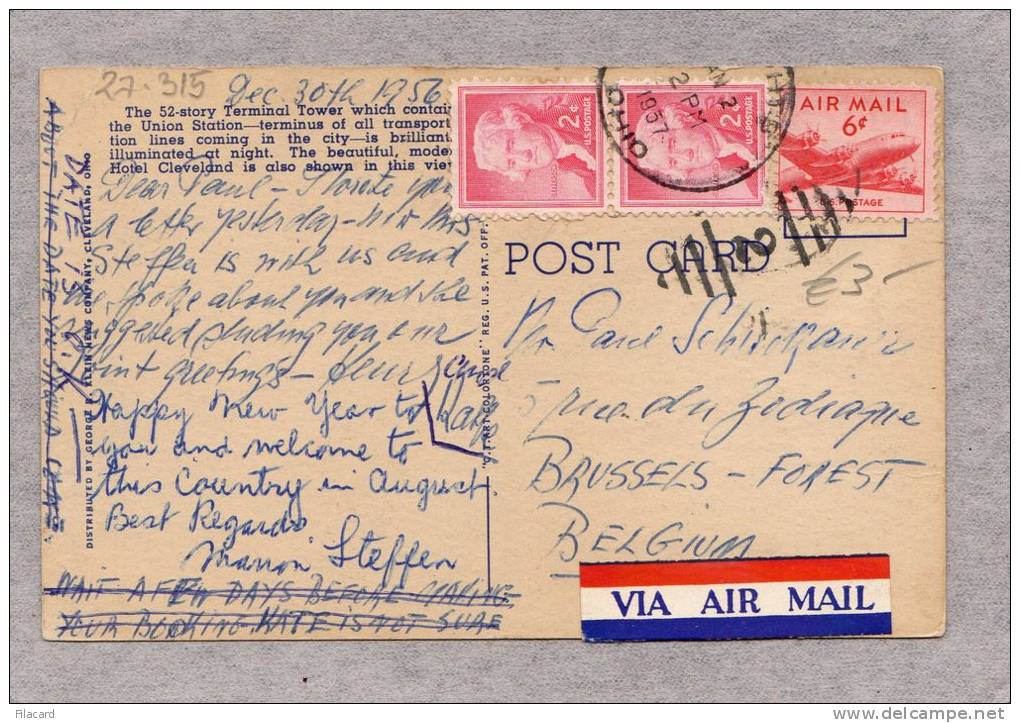 27-315
Dec. 30th 1956
The 52-story Terminal Tower which contai
the Union Station—terminus of all transport
tion lines coming in the city—is brilliant
illuminated at night. The beautiful, mode
Hotel Cleveland is also shown in this vie
Dear Paul - I wrote you
a letter yesterday - now Mrs
Steffen is with us and
we spoke about you and she
suggested sending you our
joint greetings -
Happy New Year to
you and welcome to
this Country in August
Best Regards
Marion Steffen
WAIT A FEW DAYS BEFORE MAKING
YOUR BOOKING. KATE IS NOT SURE
ABOUT THE DATE YOU SHOULD COME
DATE IS O.K.
DISTRIBUTED BY GEORGE R. KLEIN NEWS COMPANY, CLEVELAND, OHIO
"C.T. ART-COLORTONE" REG. U.S. PAT. OFF.
2¢
U.S. POSTAGE
JEFFERSON
2¢
U.S. POSTAGE
AIR MAIL
6¢
U.S. POSTAGE
2 PM
1957
OHIO
POST CARD
€3-
Mr. Paul
5 rue du Zodiaque
BRUSSELS - FOREST
BELGIUM
VIA AIR MAIL
Filacard
http://www.delcampe.net